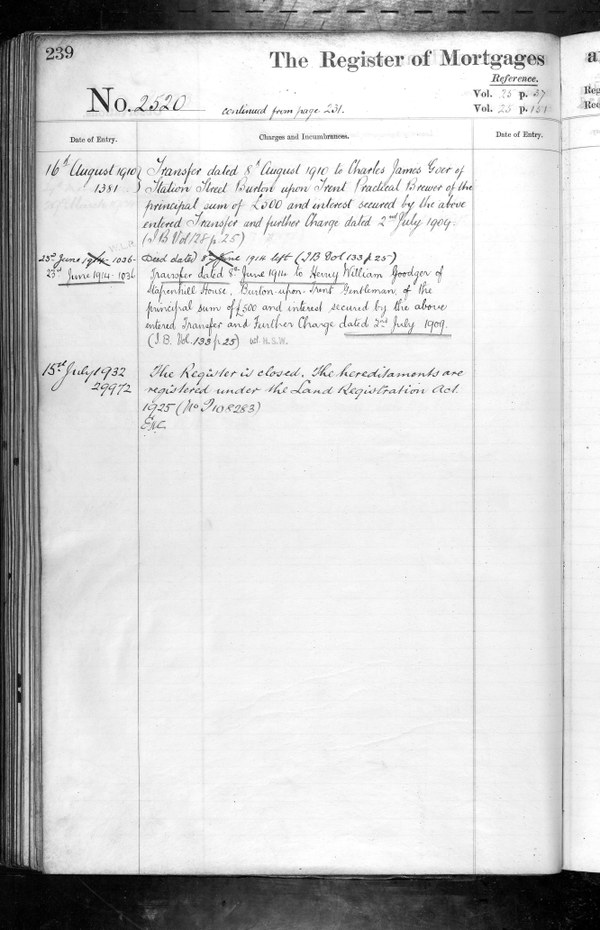 239
The Register of Mortgages
Reference.
No. 2520
continued from page 231.
Vol. 25 p. 37
Vol. 25 p. 151
Date of Entry.
Charges and Incumbrances.
Date of Entry.
16th August 1910
1381
Transfer dated 8th August 1910 to Charles James Goer of
Station Street Burton upon Trent Practical Brewer of the
principal sum of £500 and interest secured by the above
entered Transfer and further Charge dated 2nd July 1909.
(I B Vol 128 p. 25)
23rd June 1914 1036
Deed dated 8th June 1914 left (I B Vol 133 p 25)
23rd June 1914. 1036
Transfer dated 8th June 1914 to Henry William Goodger of
Stapenhill House, Burton-upon-Trent Gentleman of the
principal sum of £500 and interest secured by the above
entered Transfer and Further Charge dated 2nd July 1909.
(I.B. Vol. 133 p. 25)
15th July 1932
29972
The Register is closed. The hereditaments are
registered under the Land Registration Act
1925 (No